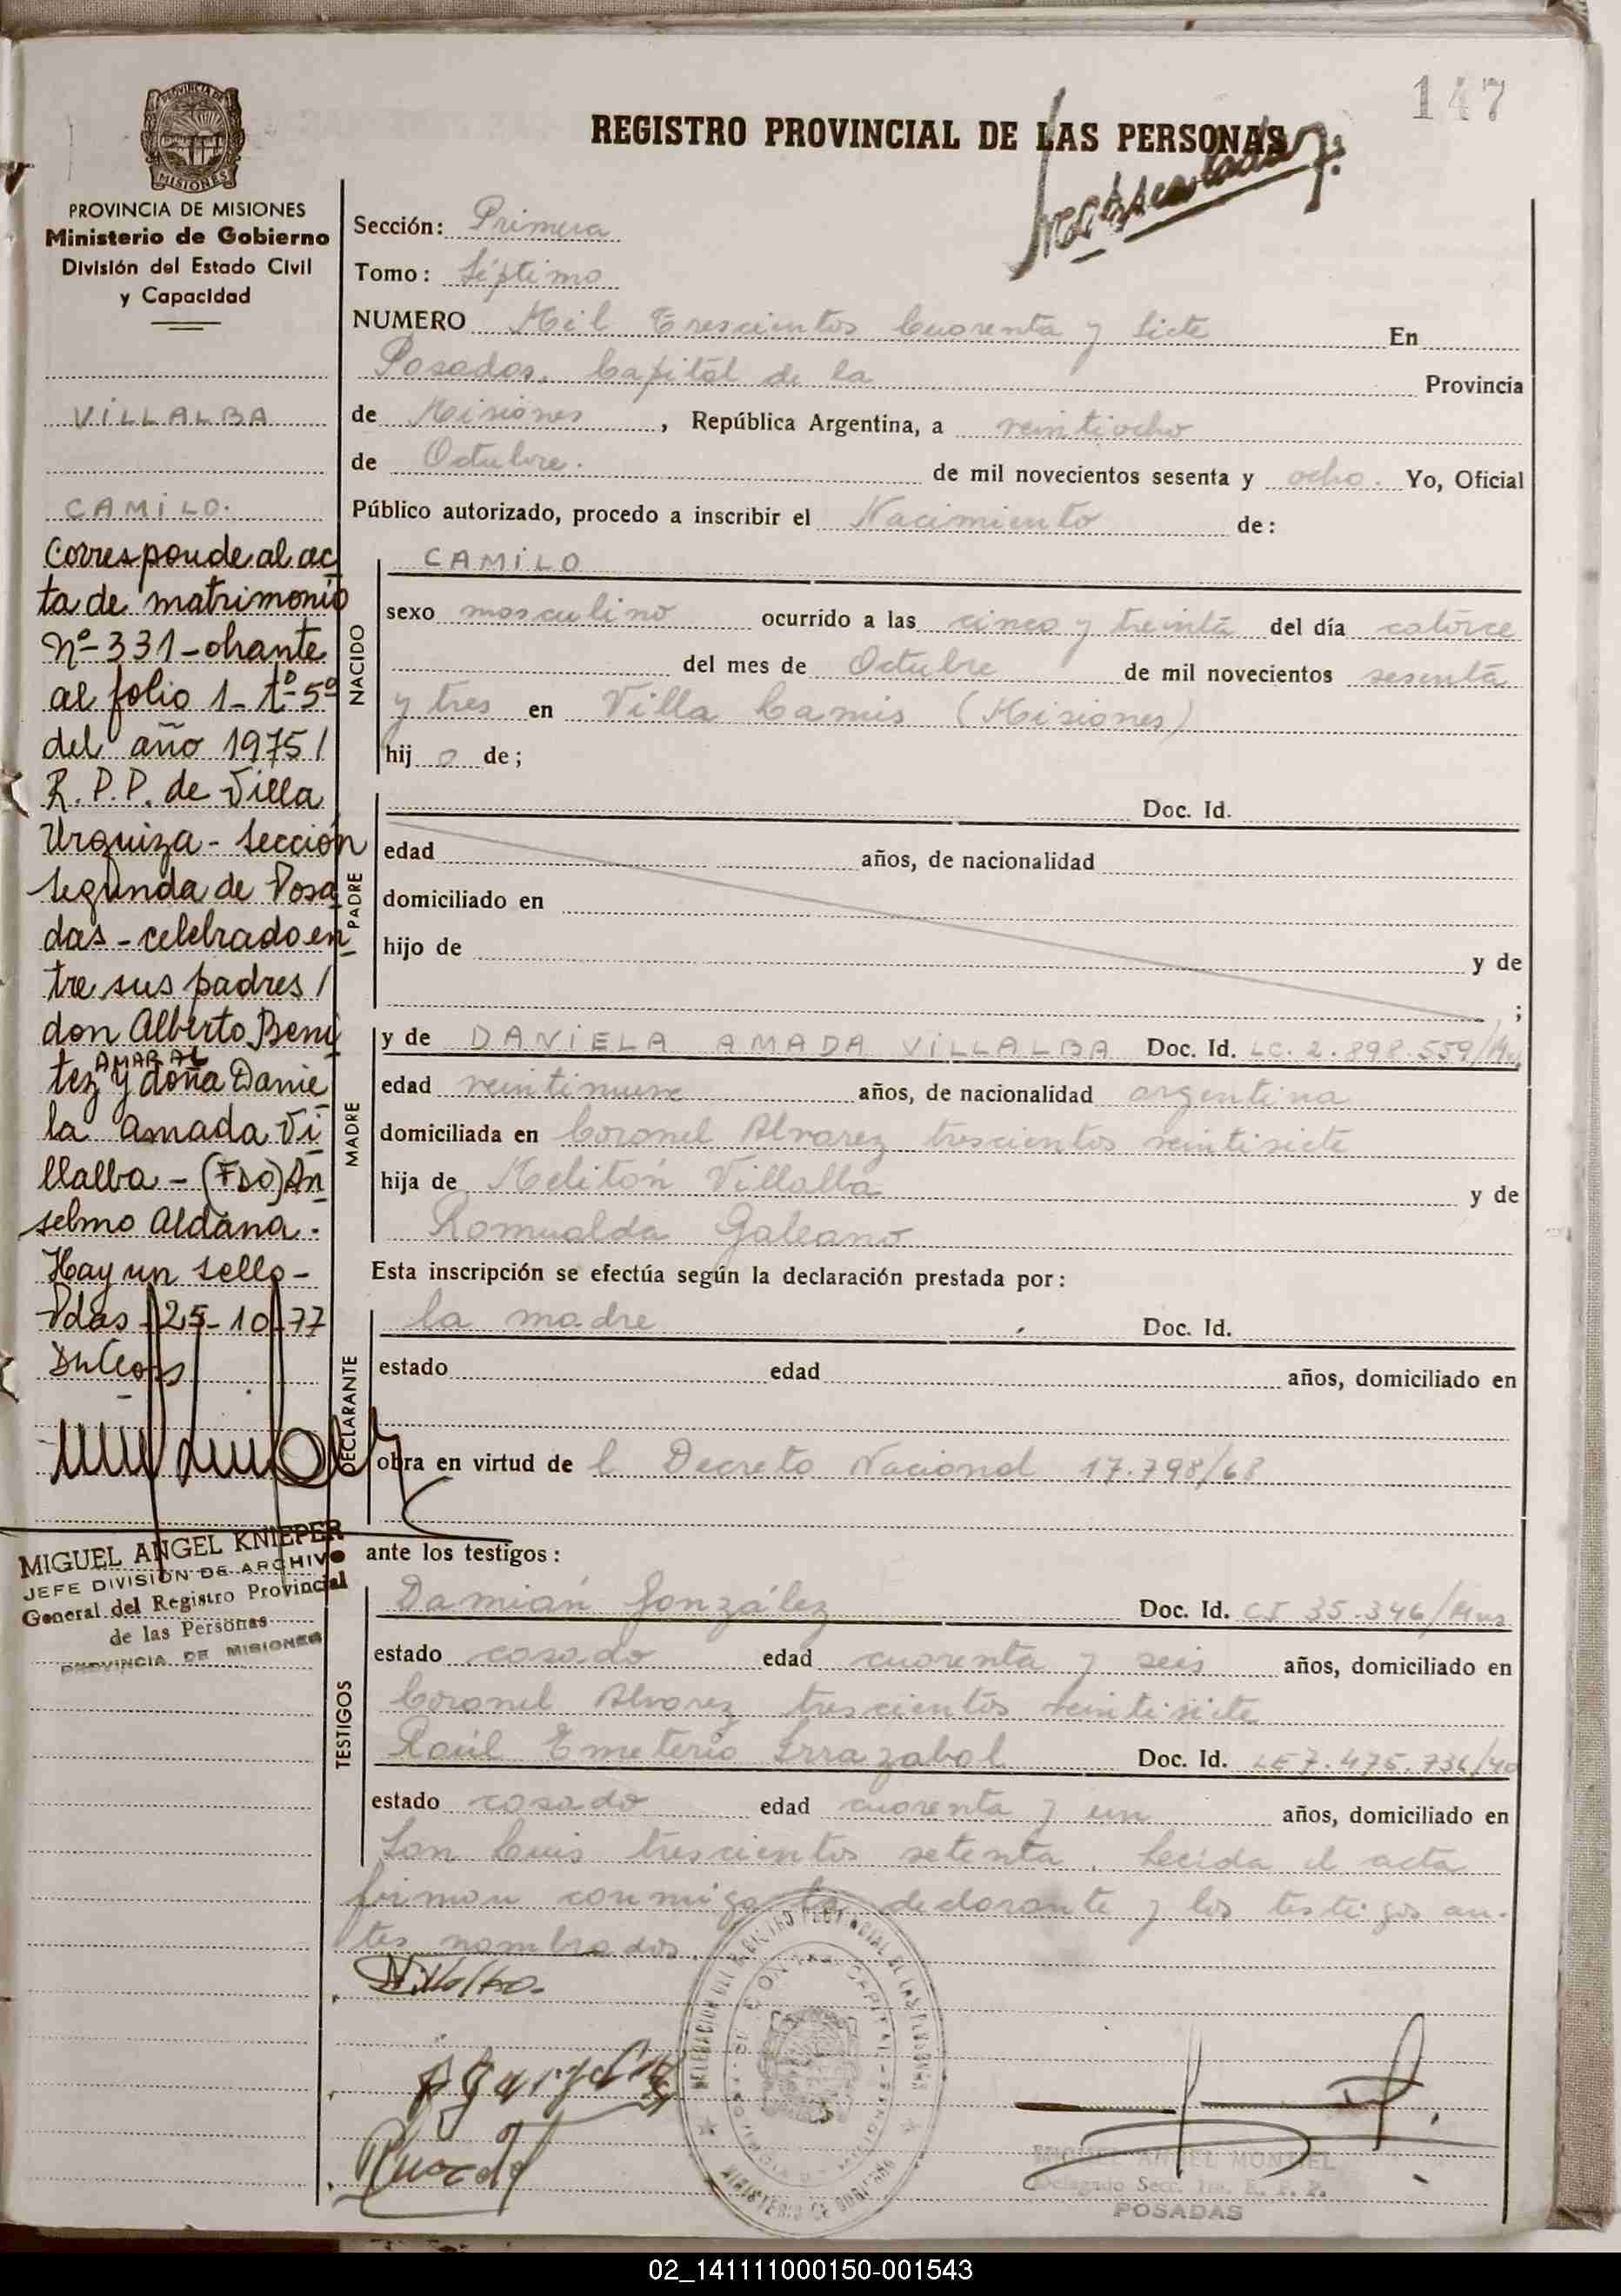 147
REGISTRO PROVINCIAL DE LAS PERSONAS
PROVINCIA DE
MISIONES
PROVINCIA DE MISIONES
Ministerio de Gobierno
División del Estado Civil
y Capacidad
VILLALBA
CAMILO.
Corresponde al ac
ta de matrimonio
Nº 331 - obrante
al folio 1 - tº 5º
del año 1975 /
R. P. P. de Villa
Urquiza - Sección
Segunda de Posa
das - celebrado en
tre sus padres /
don Alberto Bení
AMARAL
tez y doña Danie
la Amada Vi
llalba - (FDO) An
selmo Aldana.
Hay un sello -
Pdas 25-10-77
MIGUEL ANGEL KNIEPER
JEFE DIVISIÓN DE ARCHIVO
General del Registro Provincial
de las Personas
PROVINCIA DE MISIONES
Sección: Primera
Tomo: Séptimo
NUMERO Mil Trescientos Cuarenta y Siete En
Posadas, Capital de la Provincia
de Misiones, República Argentina, a veintiocho
de Octubre. de mil novecientos sesenta y ocho. Yo, Oficial
Público autorizado, procedo a inscribir el Nacimiento de:
NACIDO
CAMILO
sexo masculino ocurrido a las cinco y treinta del día catorce
del mes de Octubre de mil novecientos sesenta
y tres en Villa Lamis (Misiones)
hij o de;
PADRE
Doc. Id.
edad años, de nacionalidad
domiciliado en
hijo de y de
;
MADRE
y de DANIELA AMADA VILLALBA Doc. Id. LC. 2.898.559/
edad veintinueve años, de nacionalidad argentina
domiciliada en Coronel Alvarez trescientos veintisiete
hija de Melitón Villalba y de
Romualda Galeano
Esta inscripción se efectúa según la declaración prestada por:
DECLARANTE
la madre Doc. Id.
estado edad años, domiciliado en
obra en virtud de l Decreto Nacional 17.798/68
ante los testigos:
TESTIGOS
Damián González Doc. Id. CI 35.346/Mns
estado casado edad cuarenta y seis años, domiciliado en
Coronel Alvarez trescientos veintisiete
Raúl Emeterio Irrazabal Doc. Id. LE 7.475.736/40
estado casado edad cuarenta y un años, domiciliado en
San Luis trescientos setenta. Leída el acta
firman conmigo la declarante y los testigos an-
tes nombrados.
Villalba.
MINISTERIO DE GOBIERNO
MIGUEL ANGEL MONTIEL
Delegado Secc. 1ra. R. P. P.
POSADAS
02_141111000150-001543